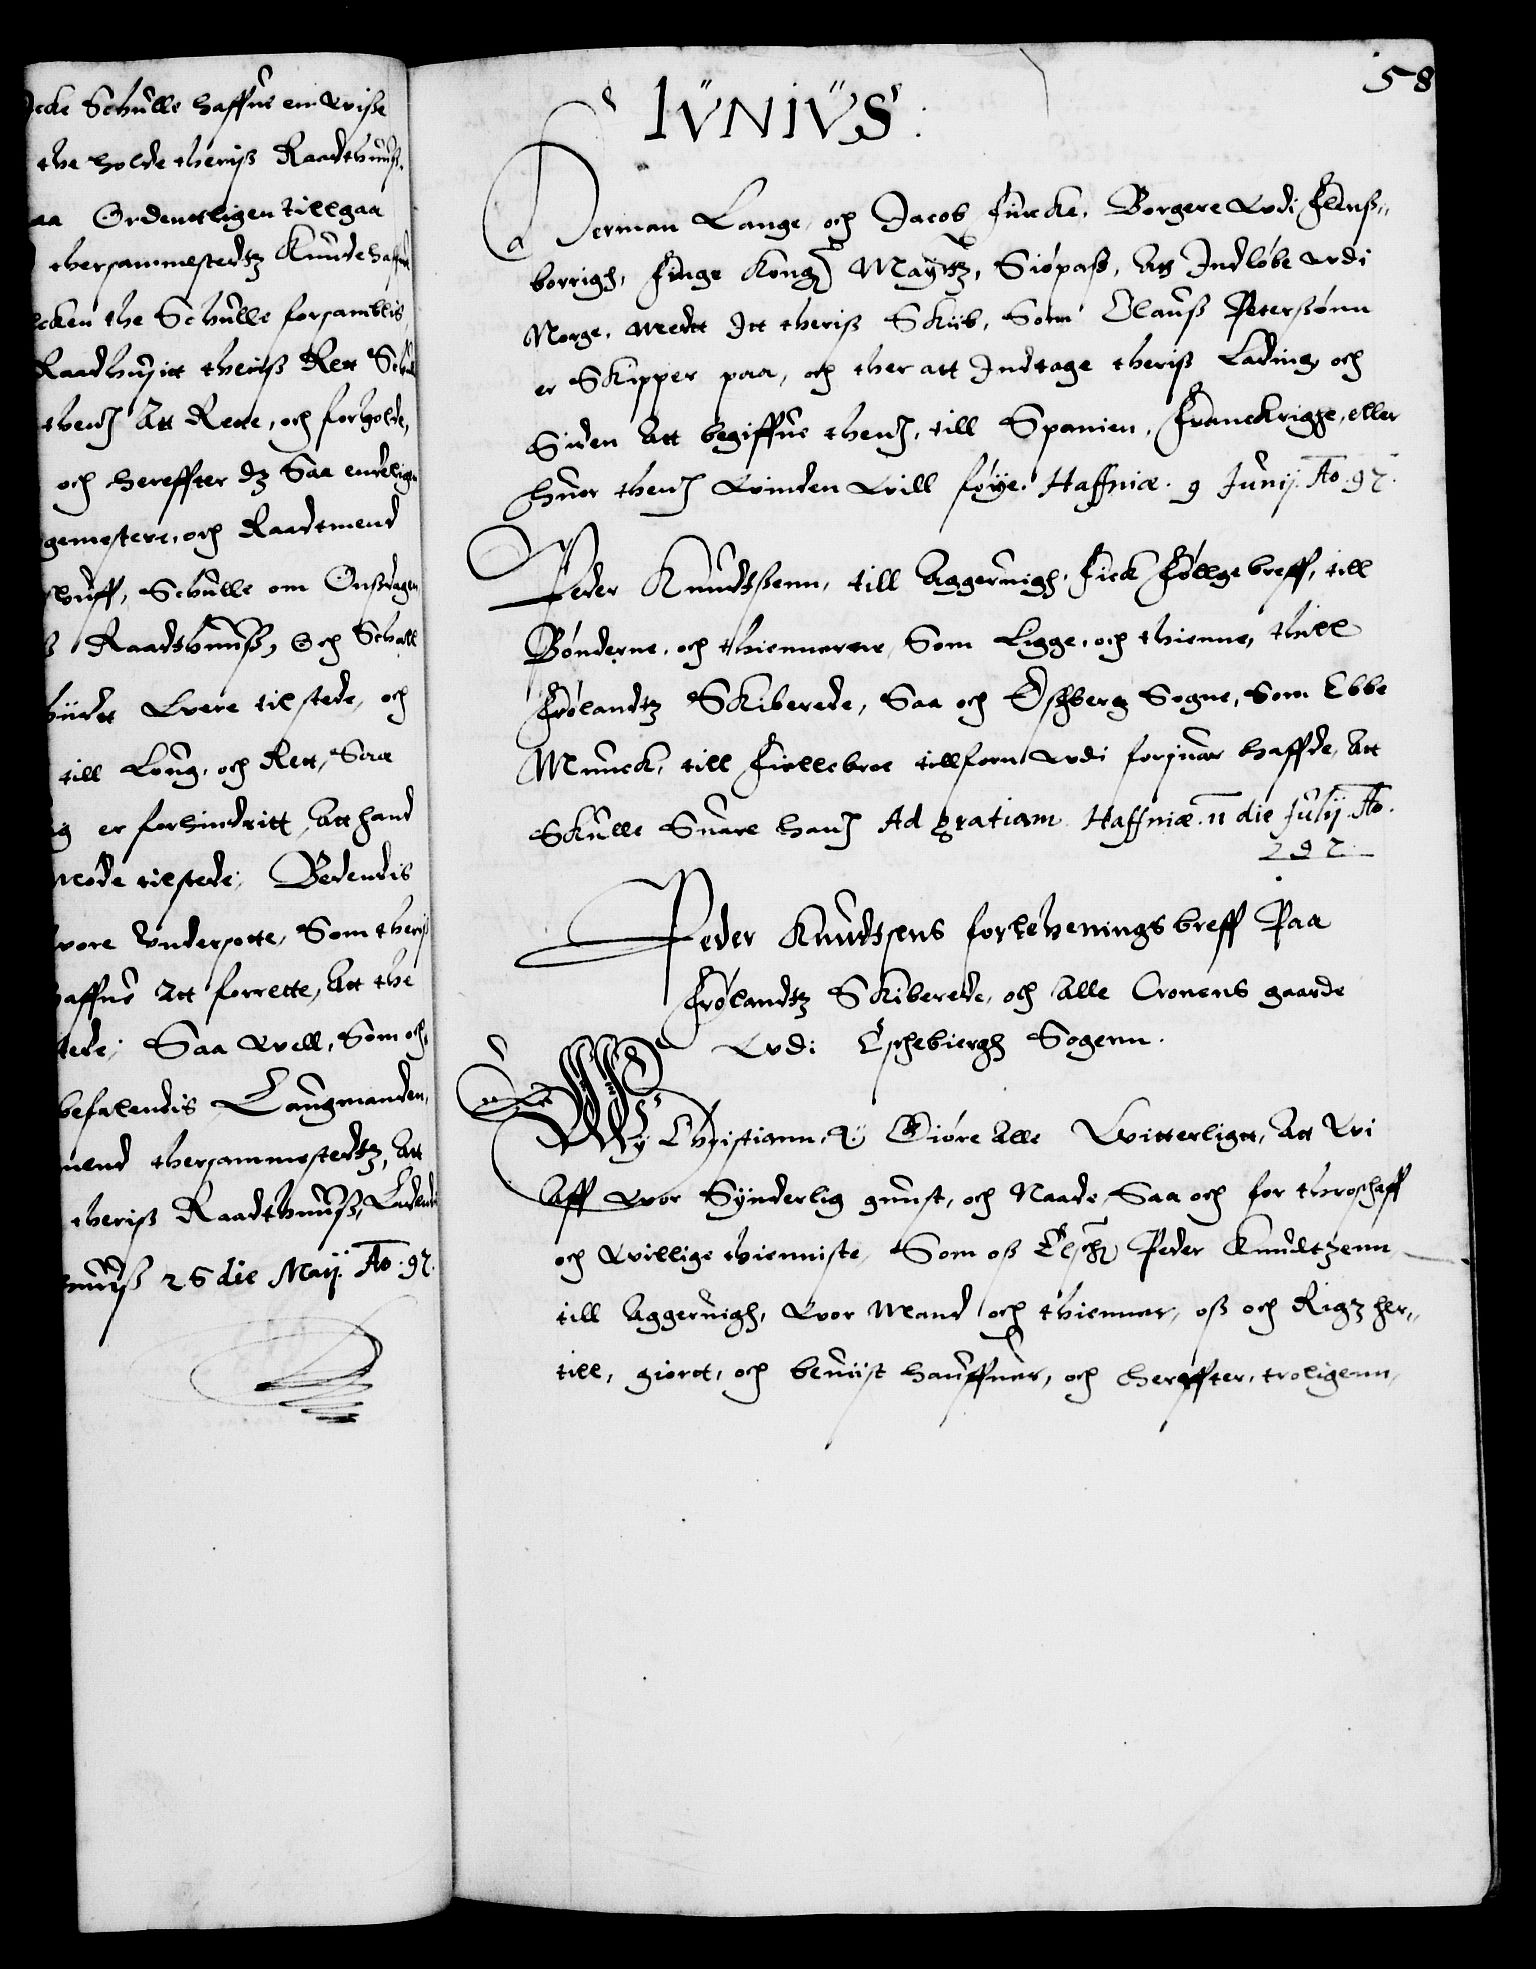 ecke Schulle haffue en wisse
the holde theriß Raadthuuß.
aa Ordenttligen tillgaa
thersammestedtz Knude haffue
lcken the Schulle forsamblis,
Raadhusitt theriß Rett Schul
thend Att Rette, och forholde,
och hereffter dz Saa endelige
gemestere, och Raadtmend
huff, Schulle om Onßdagen
ß Raadthuuß, Och Schall
biudt were til stede, och
till Loug, och Rett, Saa
ig er forhindritt, Att hand
møde tilstede; Bedendis
wore Undersotte, Som theriß
haffue Att forrette, Att the
stede; Saa well, Som och
befalendis Laugmanden,
mend thersammestedtz, Att
theriß Raadthuuß, Ladend
muuß 26 die Maij. Ao. 97.
58
IUNIUS.
Herman Lange, och Jacob Fincke, Borgere udi Flenß„
borrigh, Finge Kong: Maytz, Siøpaß, Att Indløbe udi
Norge, medt Itt theriß Skib, Som Clauß Peterßønn
er Skipper paa, och ther att Indtage theriß Lading, och
Siden Att begiffue thend, till Spanien, Franckrigge, eller
huor thend Winden Will føye. Haffniæ. 9 Junij. Ao. 97.
Peder Knudtßenn, till Aggeruigh, Fick Føllgebreff, till
Bønderne, och thiennerne, Som Ligge, och thienne, thill
Frølandtz Skiberede, Saa och Eschberg Sogne, Som Ebbe
Munck, till Fiellebroe tillforn udi forsuar haffde, Att
Skulle Suare hand Ad gratiam Haffniæ. 11 die Julij. Ao.
97.
Peder Knudtsens forlehenings breff Paa
Frølandtz Skiberede, och Alle Cronens gaarde
udi Eschebiergh Sogenn.
Wy Christiann, &: Giøre Alle Witterligtt, Att Wi
Aff wor Synderlig gunst, och Naade, Saa och for throschaff
och Willige thienniste, Som oß Elsch: Peder Knudtzenn
till Aggeruigh, Wor Mand och thienner, oß och Rigz her„
till, giørtt, och beuiist hauffuer, och hereffter, troligenn,